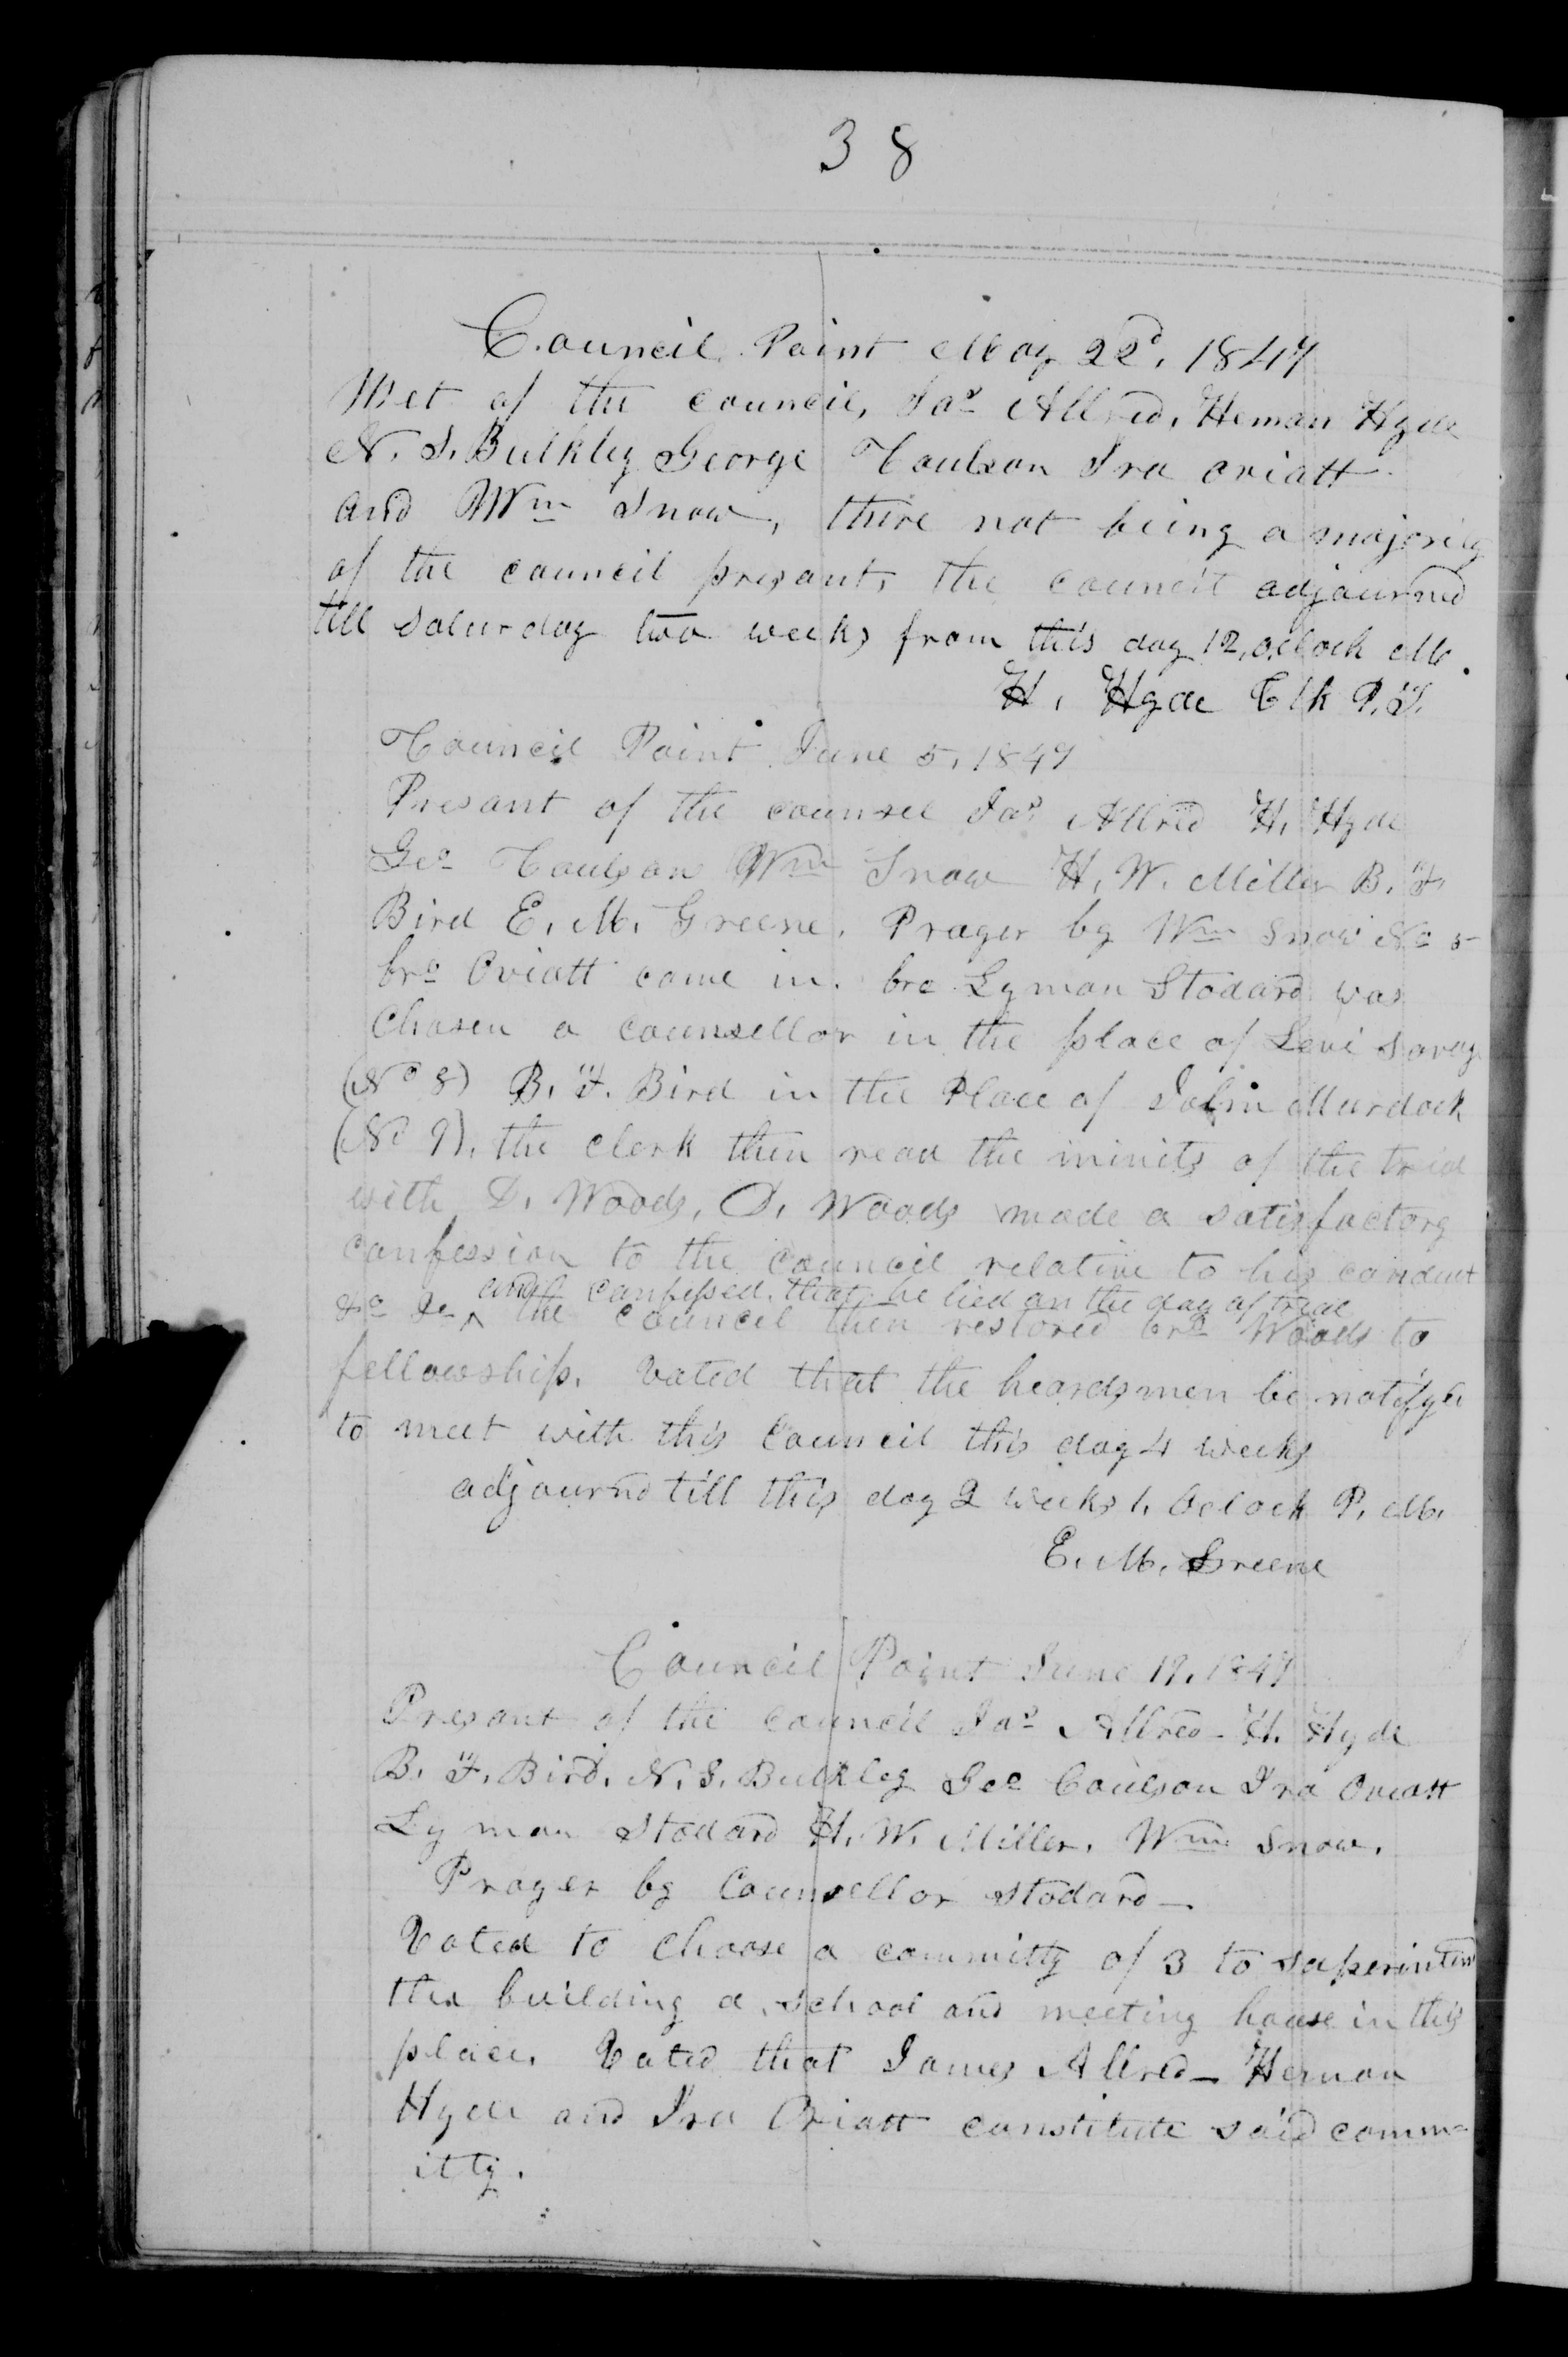 38
Council Point May 22d, 1847
Met of the council, Jas Allred, Heman Hyde
N. S. Bulkley George Coulson Ira oviatt
and Wm Snow, there not being a majority
of the council presant, the council adjournd
till saturday two weeks from this day 12, oclock M.
H. Hyde Clk P.T.
Council Point June 5, 1847
Presant of the counsel Jas Allred H. Hyde
Geo Coulson Wm Snow H. W. Miller B. F.
Bird E. M. Greene. Prayer by Wm Snow No 5
bro Oviatt came in. bro Lyman Stodard was
Chosen a counsellor in the place of Levi Savage
(No 8) B. F. Bird in the Place of John Murdock
(No 9), the clerk then read the minits of the trial
with D. Woods, D. Woods made a satisfactory
confession to the council relative to his conduct
and confessed that he lied on the day of trial
&c &c ^ the council then restored bro Woods to
fellowship. Voted that the heardsmen be notifyd
to meet with this Council this day 4 weeks
adjournd till this day 2 weeks 1, Oclock P. M.
E. M. Greene
Council Point June 19, 1847
Presant of the council Jas Allred - H. Hyde
B. F. Bird, N. S. Bulkley Geo Coulson Ira Oviatt
Lyman Stodard H. W. Miller, Wm Snow.
Prayer by Counsellor Stodard —
Voted to choose a committy of 3 to superintend
the building a school and meeting house in this
place. Voted that James Allred - Heman
Hyde and Ira Oviatt constitute said comm=
itty.